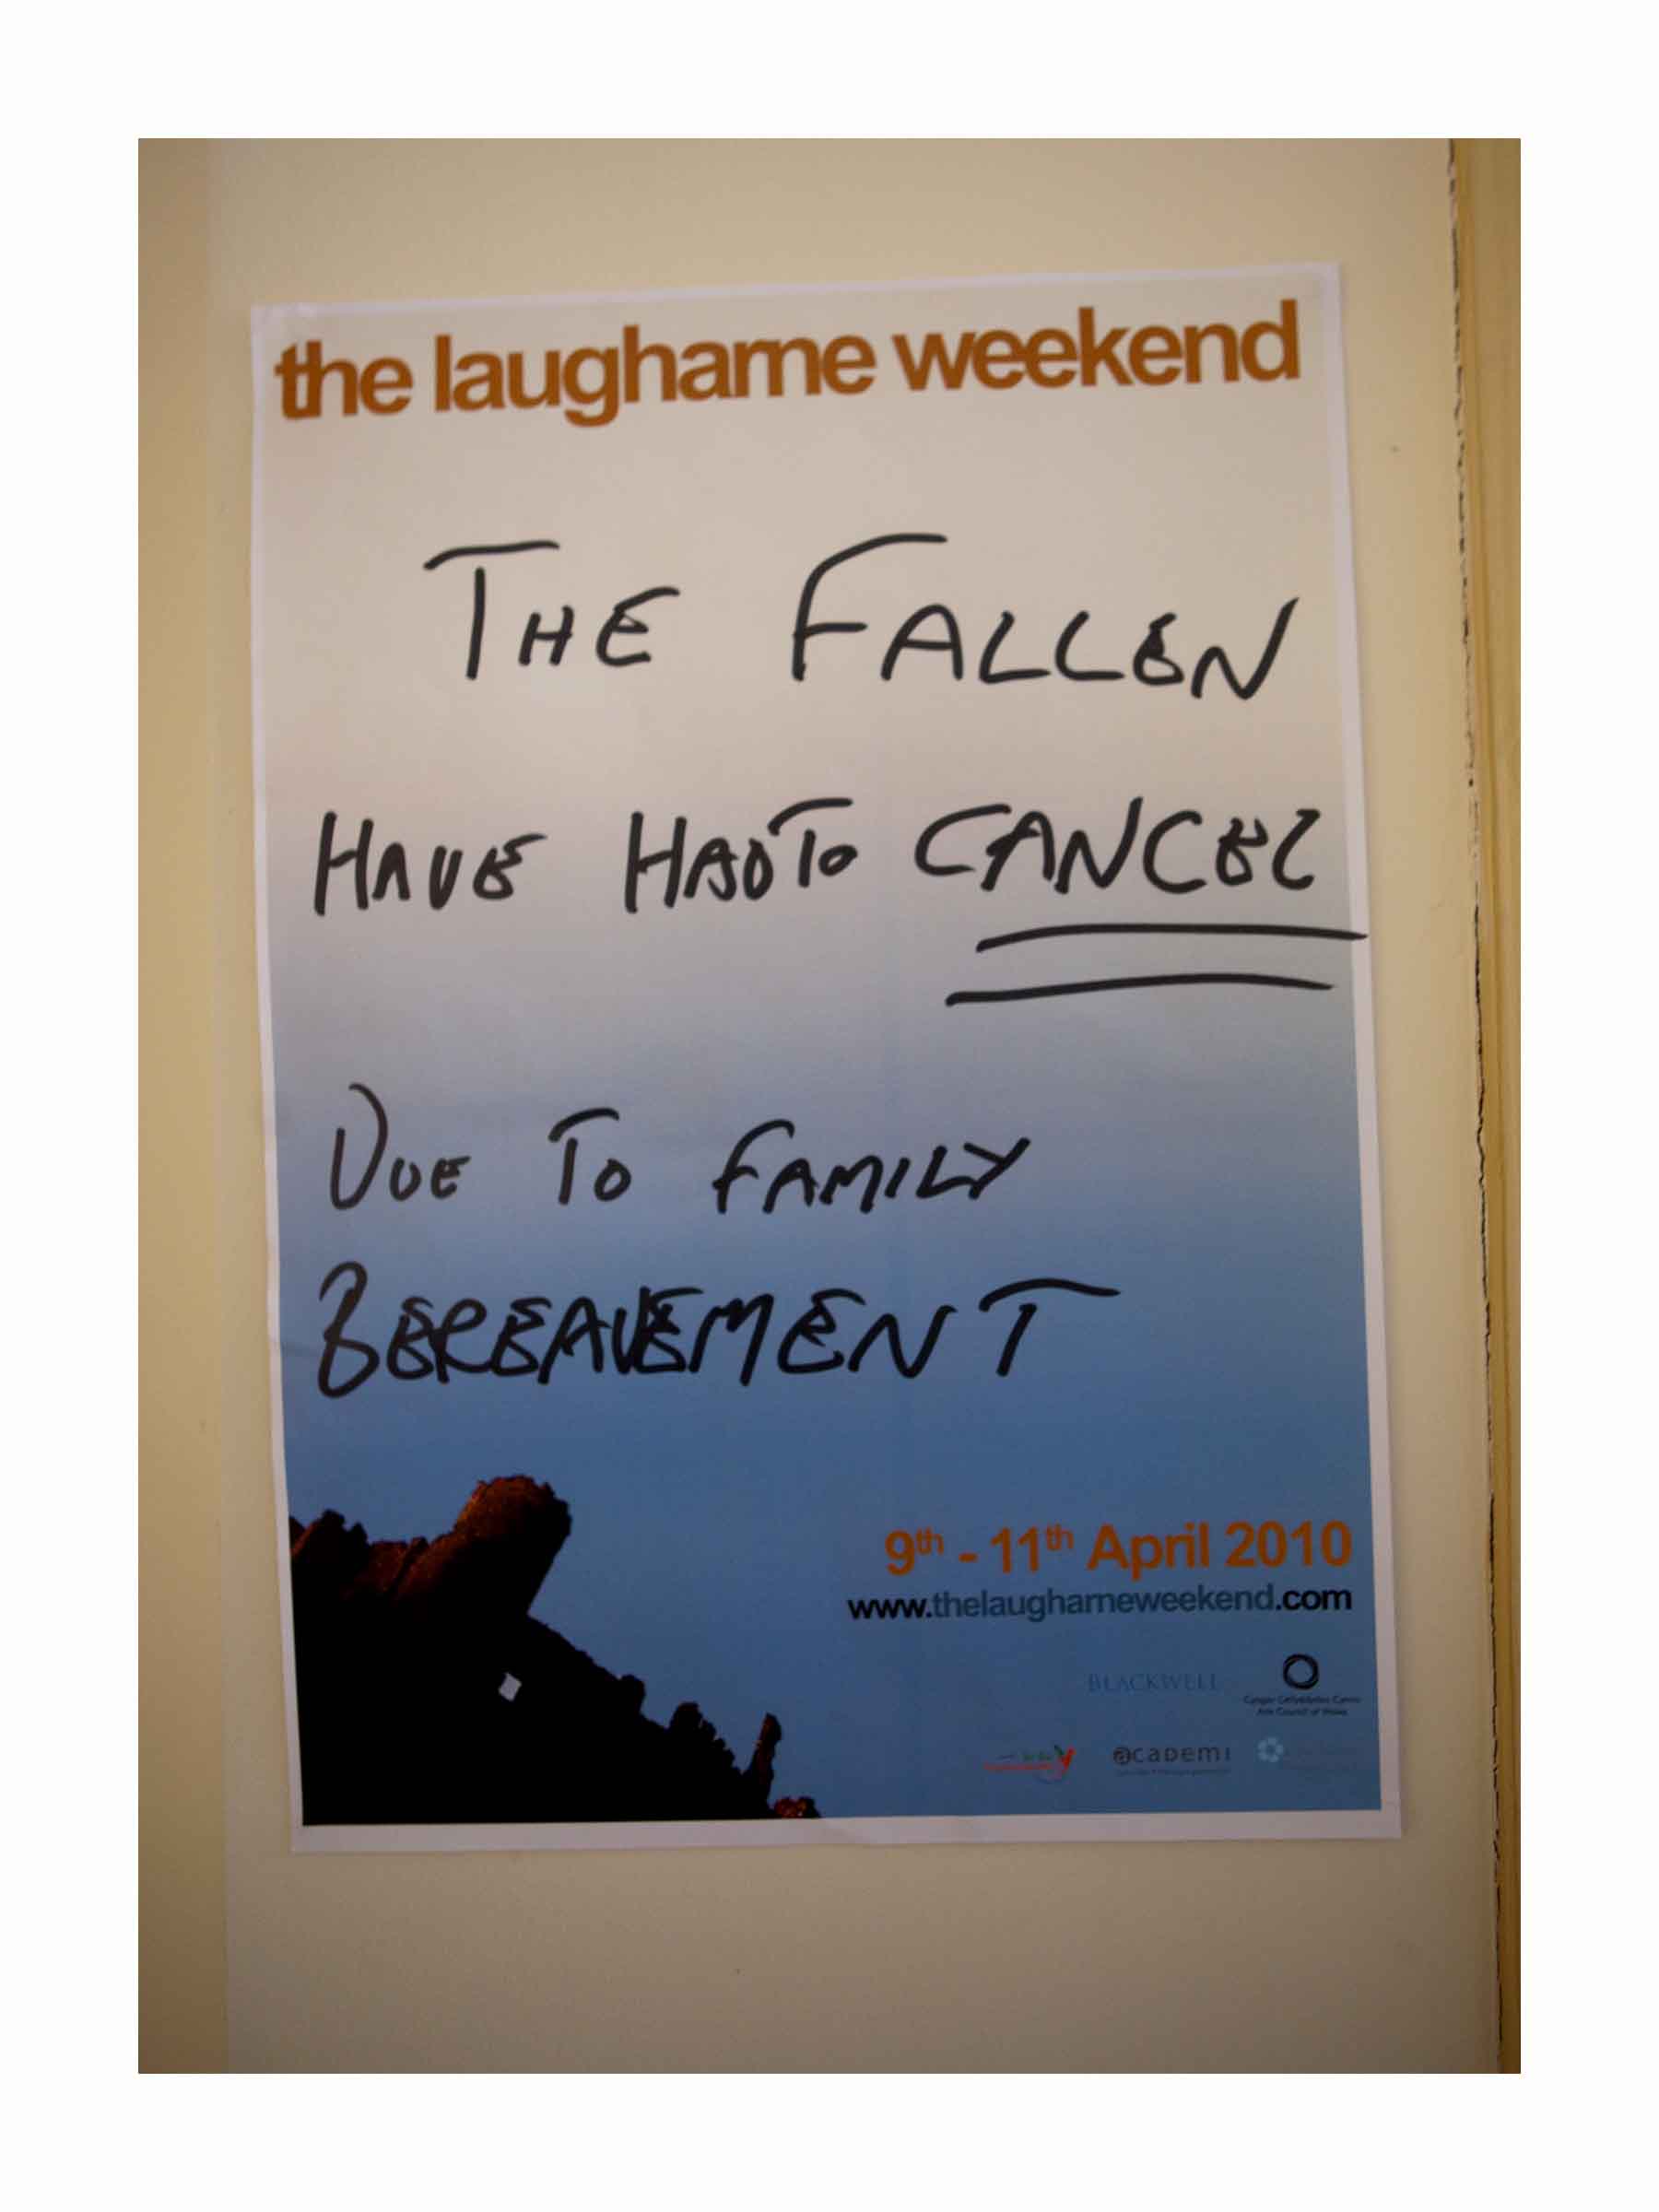 the laugharne weekend
THE FALLEN
HAVE HAD TO CANCEL
DUE TO FAMILY
BEREAVEMENT
9th - 11th April 2010
www.thelaugharneweekend.com
BLACKWELL
Cyngor Celfyddydau Cymru
Arts Council of Wales
academi